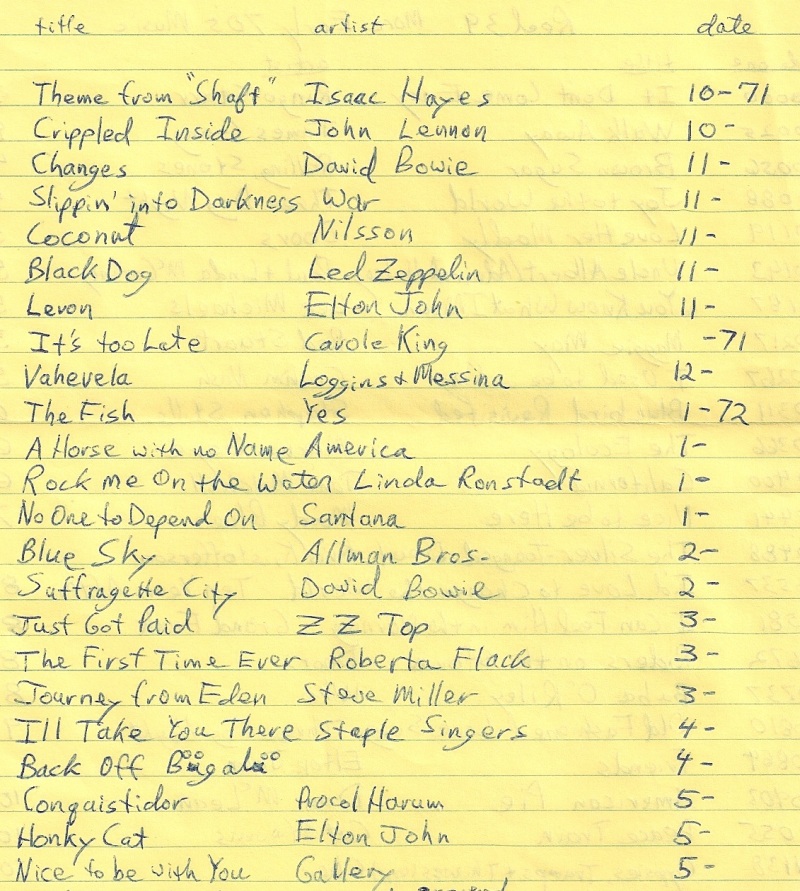 title artist date
Theme from "Shaft" Isaac Hayes 10-71
Crippled Inside John Lennon 10-
Changes David Bowie 11-
Slippin' into Darkness War 11-
Coconut Nilsson 11-
Black Dog Led Zeppelin 11-
Levon Elton John 11-
It's too Late Carole King -71
Vahevela Loggins & Messina 12-
The Fish Yes 1-72
A Horse with no Name America 1-
Rock me On the Water Linda Ronstadt 1-
No One to Depend On Santana 1-
Blue Sky Allman Bros. 2-
Suffragette City David Bowie 2-
Just Got Paid ZZ Top 3-
The First Time Ever Roberta Flack 3-
Journey from Eden Steve Miller 3-
I'll Take You There Staple Singers 4-
Back Off 4-
Conquistidor Procol Harum 5-
Honky Cat Elton John 5-
Nice to be with You Gallery 5-